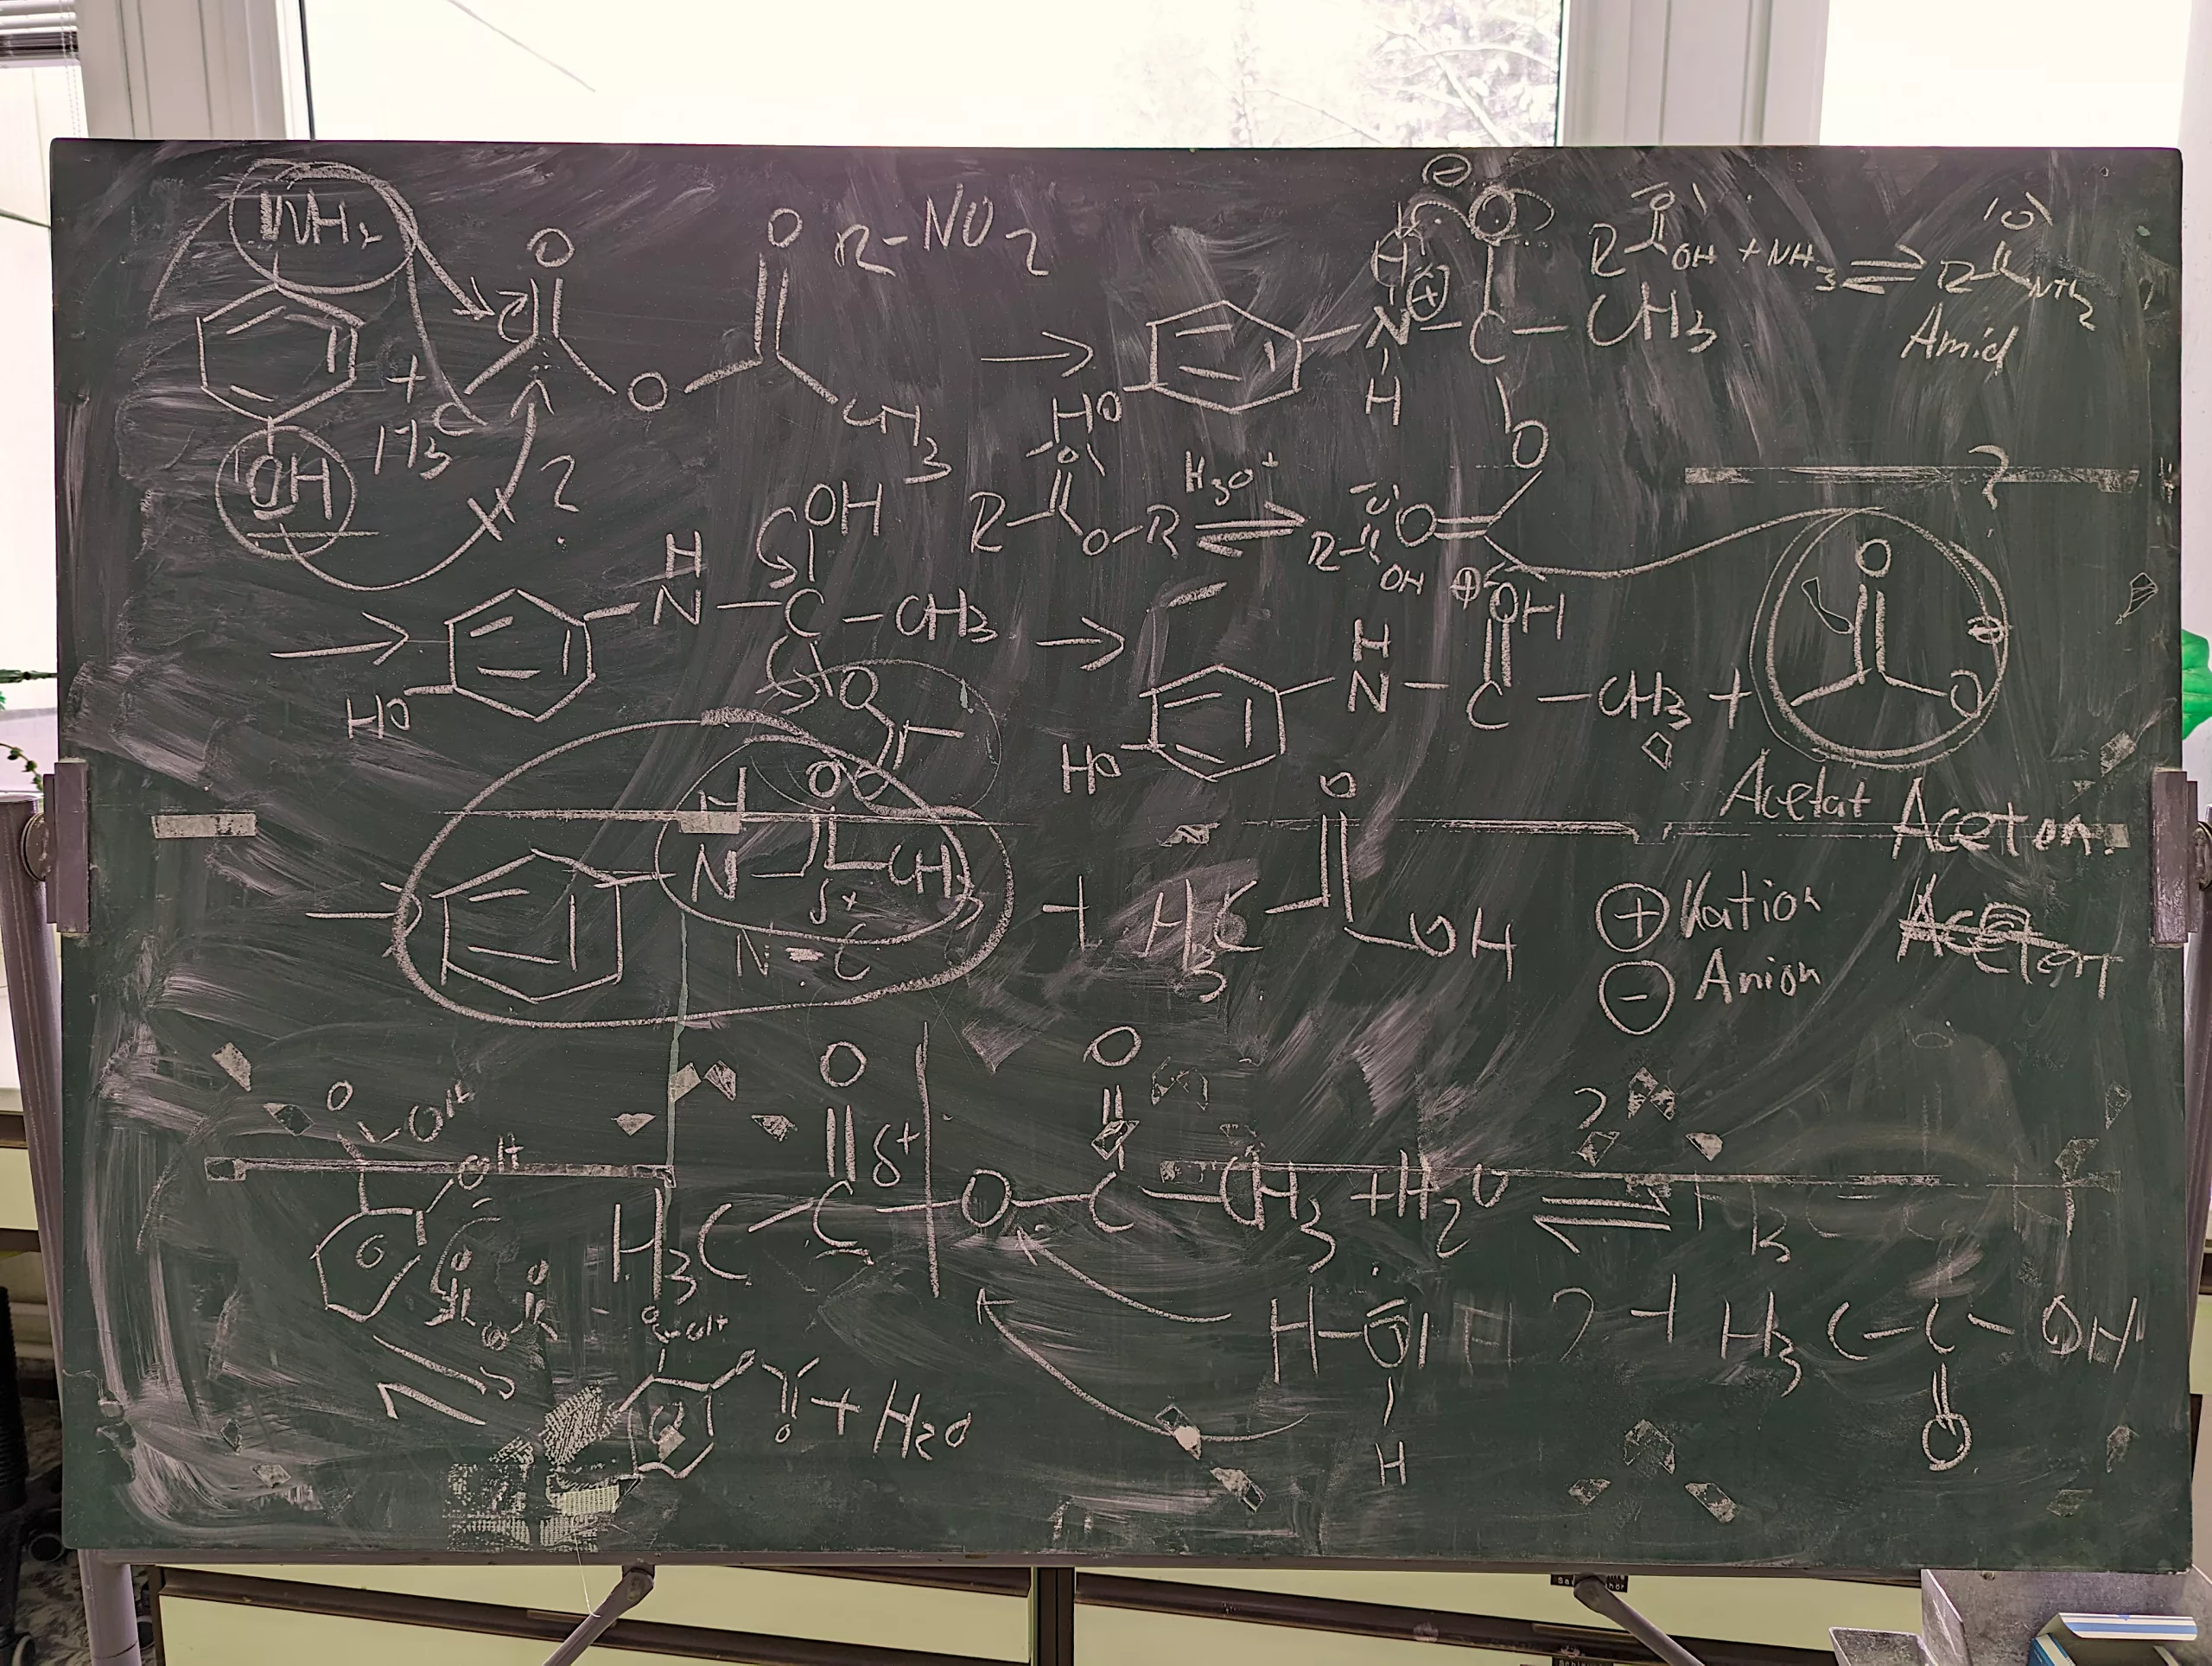 NH₂
O
O
R-NO₂
⊖
O
H
⊕
N - C - CH₃
H
HO
O
R OH + NH₃ ⇌ R NH₂
Amid
+ H₃C
O
CH₃
→
OH
?
R O-R ⇌ R OH
H₃O⁺
O
O
?
→
HO
H
N - C - CH₃
OH
O
O
→
HO
H
N - C - CH₃ +
⊕ OH
O
O
⊖
Acetat Aceton
H
N
O
CH₃
δ+
N - C
+ H₃C
O
OH
⊕ Kation
⊖ Anion
Aceton
O
OH
OH
O
O
H₃C - C - O - C - CH₃ + H₂O ⇌
δ+
?
H - O - H
H
? + H₃C - C - OH
O
O
OH
O
O
+ H₂O